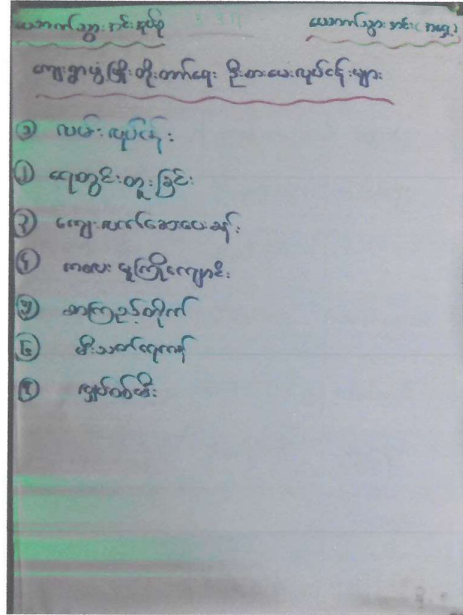 ယောက်သွားအင်းအုပ်စု ယောက်သွားအင်း(အရှေ့)
ကျေးရွာဖွံ့ဖြိုးတိုးတက်ရေး ဦးစားပေးလုပ်ငန်းများ
၁ လမ်းလုပ်ငန်း
၂ ရေတွင်းတူးခြင်း
၃ ကျေးလက်ဆေးပေးခန်း
၄ ကလေးမူကြိုကျောင်း
၅ စာကြည့်တိုက်
၆ မီးသတ်ရေကန်
၇ လျှပ်စစ်မီး